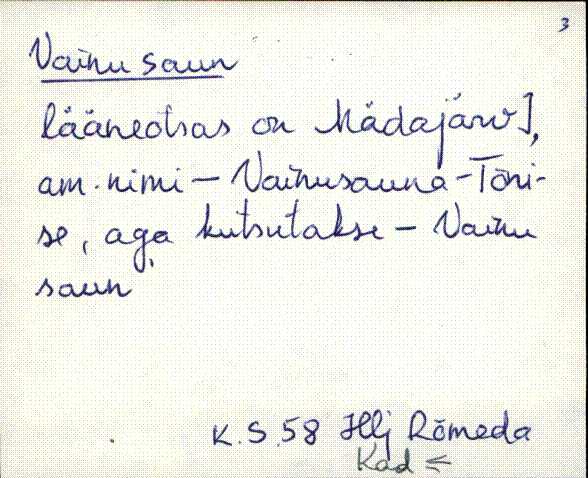 3
Vainu saun
lääneotsas on Mädajärv],
am. nimi – Vainusauna-Tõni-
se, aga kutsutakse – Vainu
saun
K.S.58 Hlj Rõmeda
Kad ≤